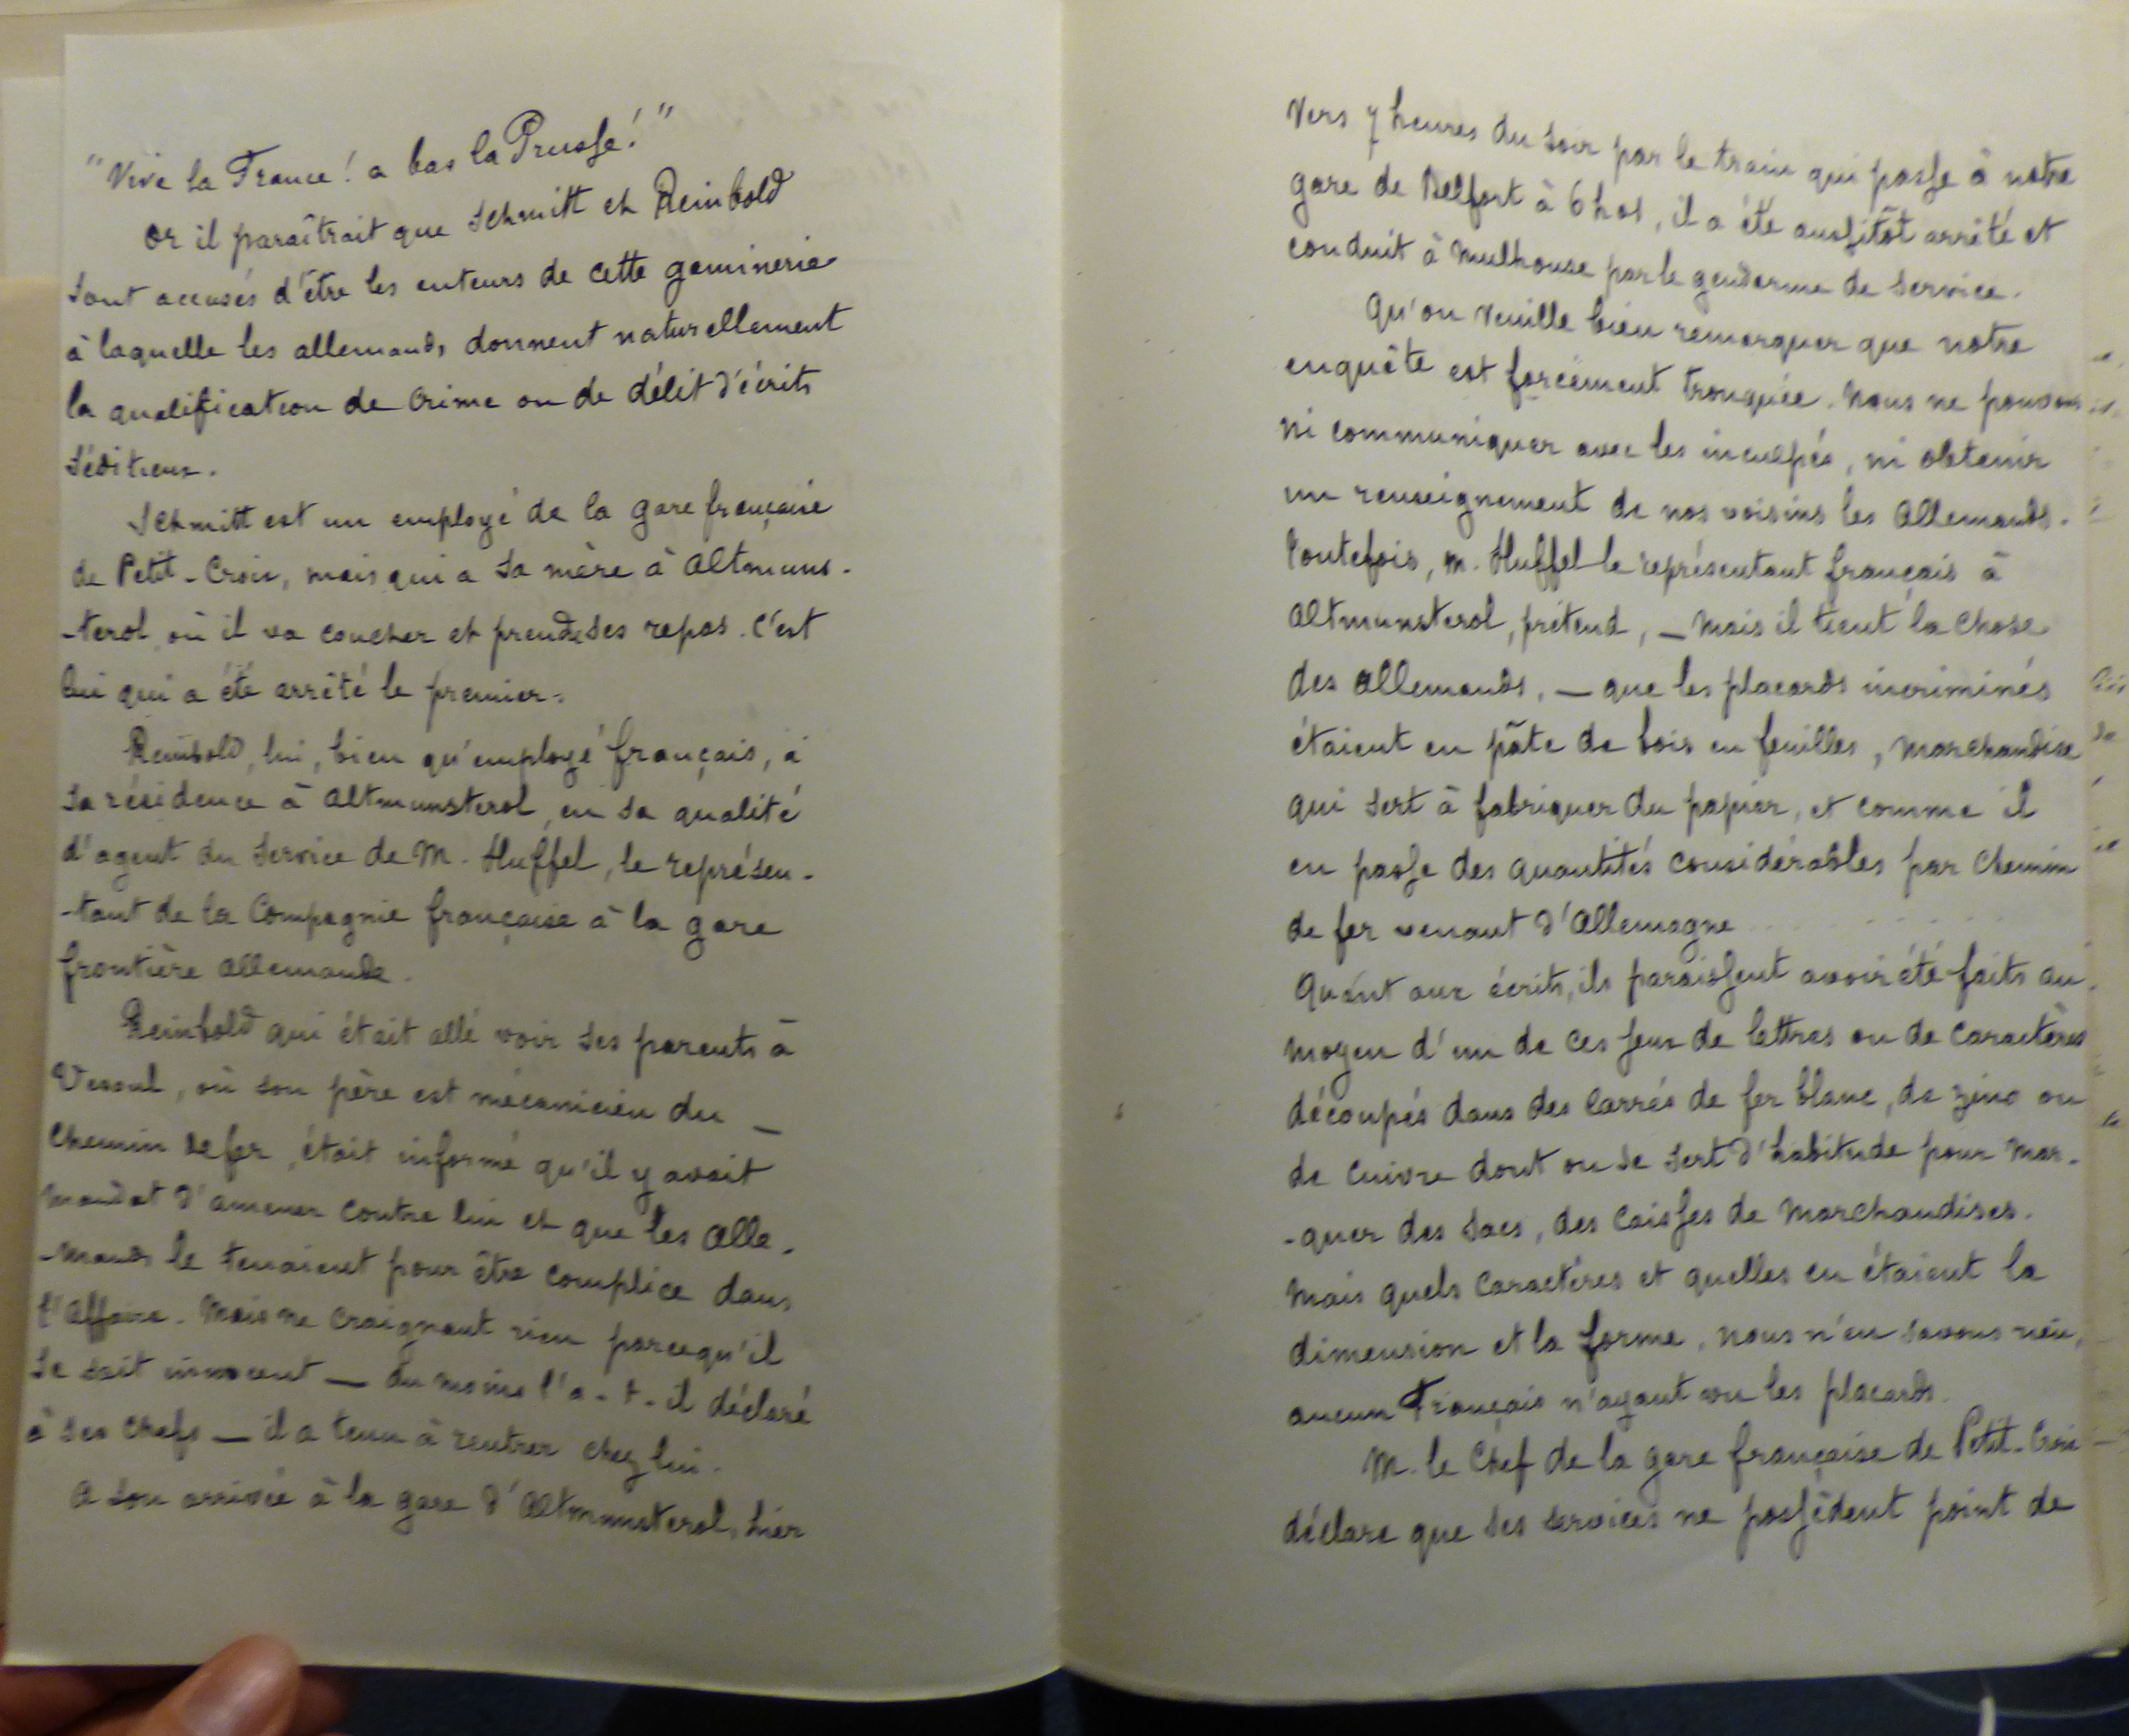 "Vive la France ! a bas la Prusse ! "
Or il paraîtrait que Schmitt et Reinbold
sont accusés d'être les auteurs de cette gaminerie
à laquelle les allemands, donnent naturellement
la qualification de Crime ou de délit d'écrits
séditieux.
Schmitt est un employé de la gare française
de Petit-Croix, mais qui a sa mère à Altmuns-
-terol, où il va coucher et prendre ses repas. C'est
lui qui a été arrêté le premier.
Reinbold, lui, bien qu'employé français, a
sa résidence à Altmunsterol, en sa qualité
d'agent du Service de M. Huffel, le représen-
-tant de la Compagnie française à la gare
frontière allemande.
Reinbold qui était allé voir ses parents à
Vesoul, où son père est mécanicien du
Chemin de fer, était informé qu'il y avait
mandat d'amener contre lui et que les Alle-
-mands le tenaient pour être complice dans
l'Affaire. Mais ne craignant rien parcequ'il
se sait innocent — du moins l'a-t-il déclaré
à ses Chefs — il a tenu à rentrer chez lui.
A son arrivée à la gare d'Altmunsterol, hier
vers 7 heures du soir par le train qui passe à notre
gare de Belfort à 6h01, il a été aussitôt arrêté et
conduit à Mulhouse par le gendarme de service.
Qu'on veuille bien remarquer que notre
enquête est forcément tronquée. Nous ne pouvons
ni communiquer avec les inculpés, ni obtenir
un renseignement de nos voisins les Allemands.
Toutefois, M. Huffel le représentant français à
Altmunsterol, prétend, — mais il tient la chose
des Allemands, — que les placards incriminés
étaient en pâte de bois en feuilles, marchandise
qui sert à fabriquer du papier, et comme il
en passe des quantités considérables par Chemin
de fer venant d'Allemagne . . . . . .
Quant aux écrits, ils paraissent avoir été faits au
moyen d'un de ces jeux de lettres ou de caractères
découpés dans des Carrés de fer blanc, de zinc ou
de cuivre dont on se sert d'habitude pour mar-
-quer des sacs, des Caisses de Marchandises.
Mais quels caractères et quelles en étaient la
dimension et la forme, nous n'en savons rien,
aucun Français n'ayant vu les placards.
M. le Chef de la gare française de Petit-Croix
déclare que ses services ne possèdent point de